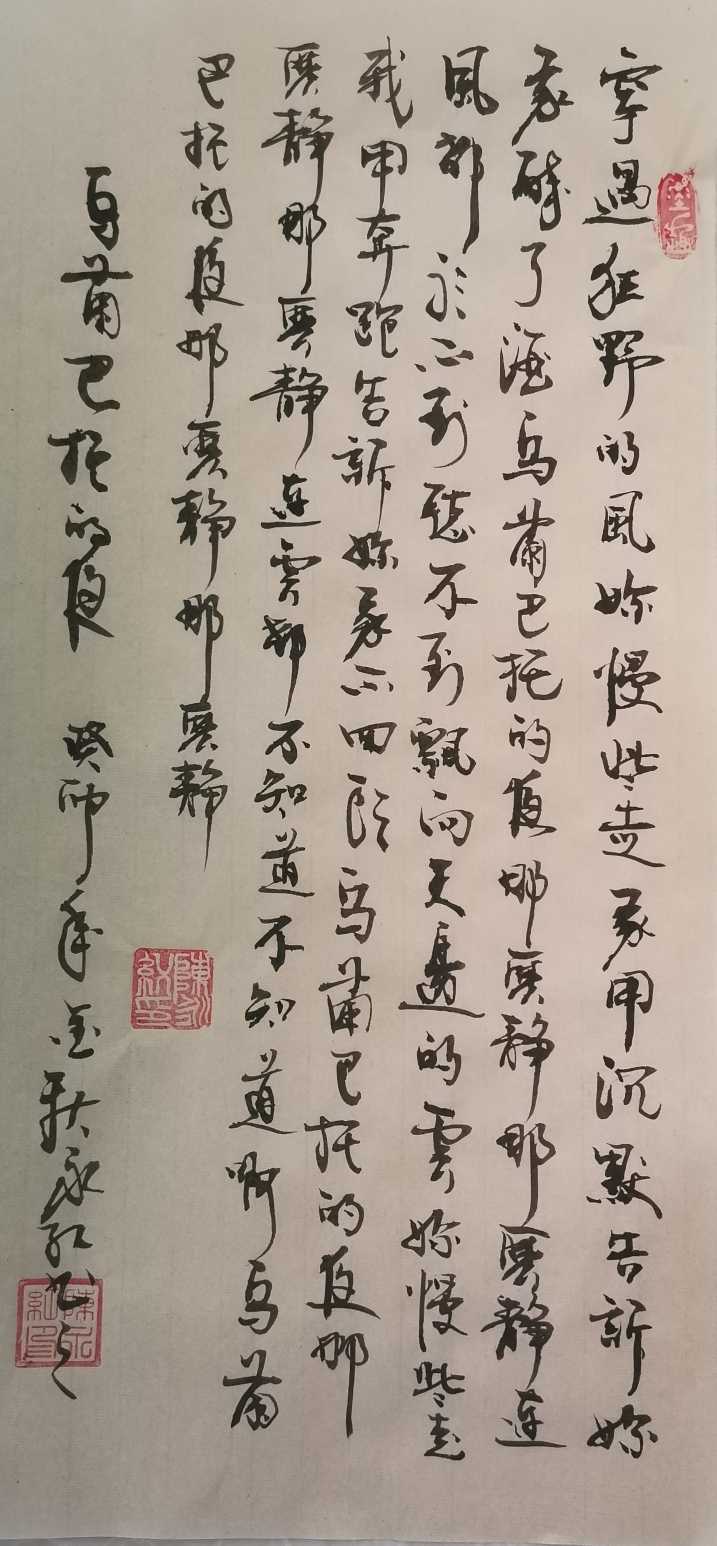 穿過狂野的風妳慢些走我用沉默告訴妳
我醉了酒烏蘭巴托的夜那麼靜那麼靜連
風都听不到聽不到飄向天邊的雲妳慢些走
我用奔跑告訴妳我不回頭烏蘭巴托的夜那
麼靜那麼靜連雲都不知道不知道啊烏蘭
巴托的夜那麼靜那麼靜
烏蘭巴托的夜 癸卯年金秋永红书之
陳永紅印
陳永紅印